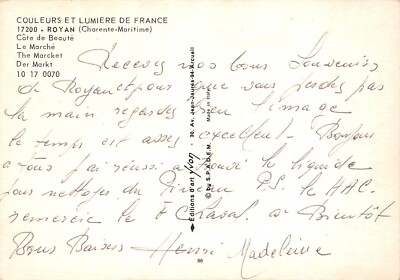 COULEURS ET LUMIERE DE FRANCE
17200 - ROYAN (Charente-Maritime)
Côte de Beauté
Le Marché
The Marcket
Der Markt
10 17 0070
Recevez nos bons Souvenirs
de Royan et pour que vous perdez pas
la main regardez l'image
le temps est assez excellent. Bonjour
a tous j'ai réussi a le liquide
pour nettoyer du Pinceau P.S. le HAC
remercie le Chaval. a Bientôt
Bons Baisers Henri Madeleine
Éditions d'art yvon
30, Av. Jean-Jaurès-94-Arcueil
Made in Italy
© by S.P.A.D.E.M.
86